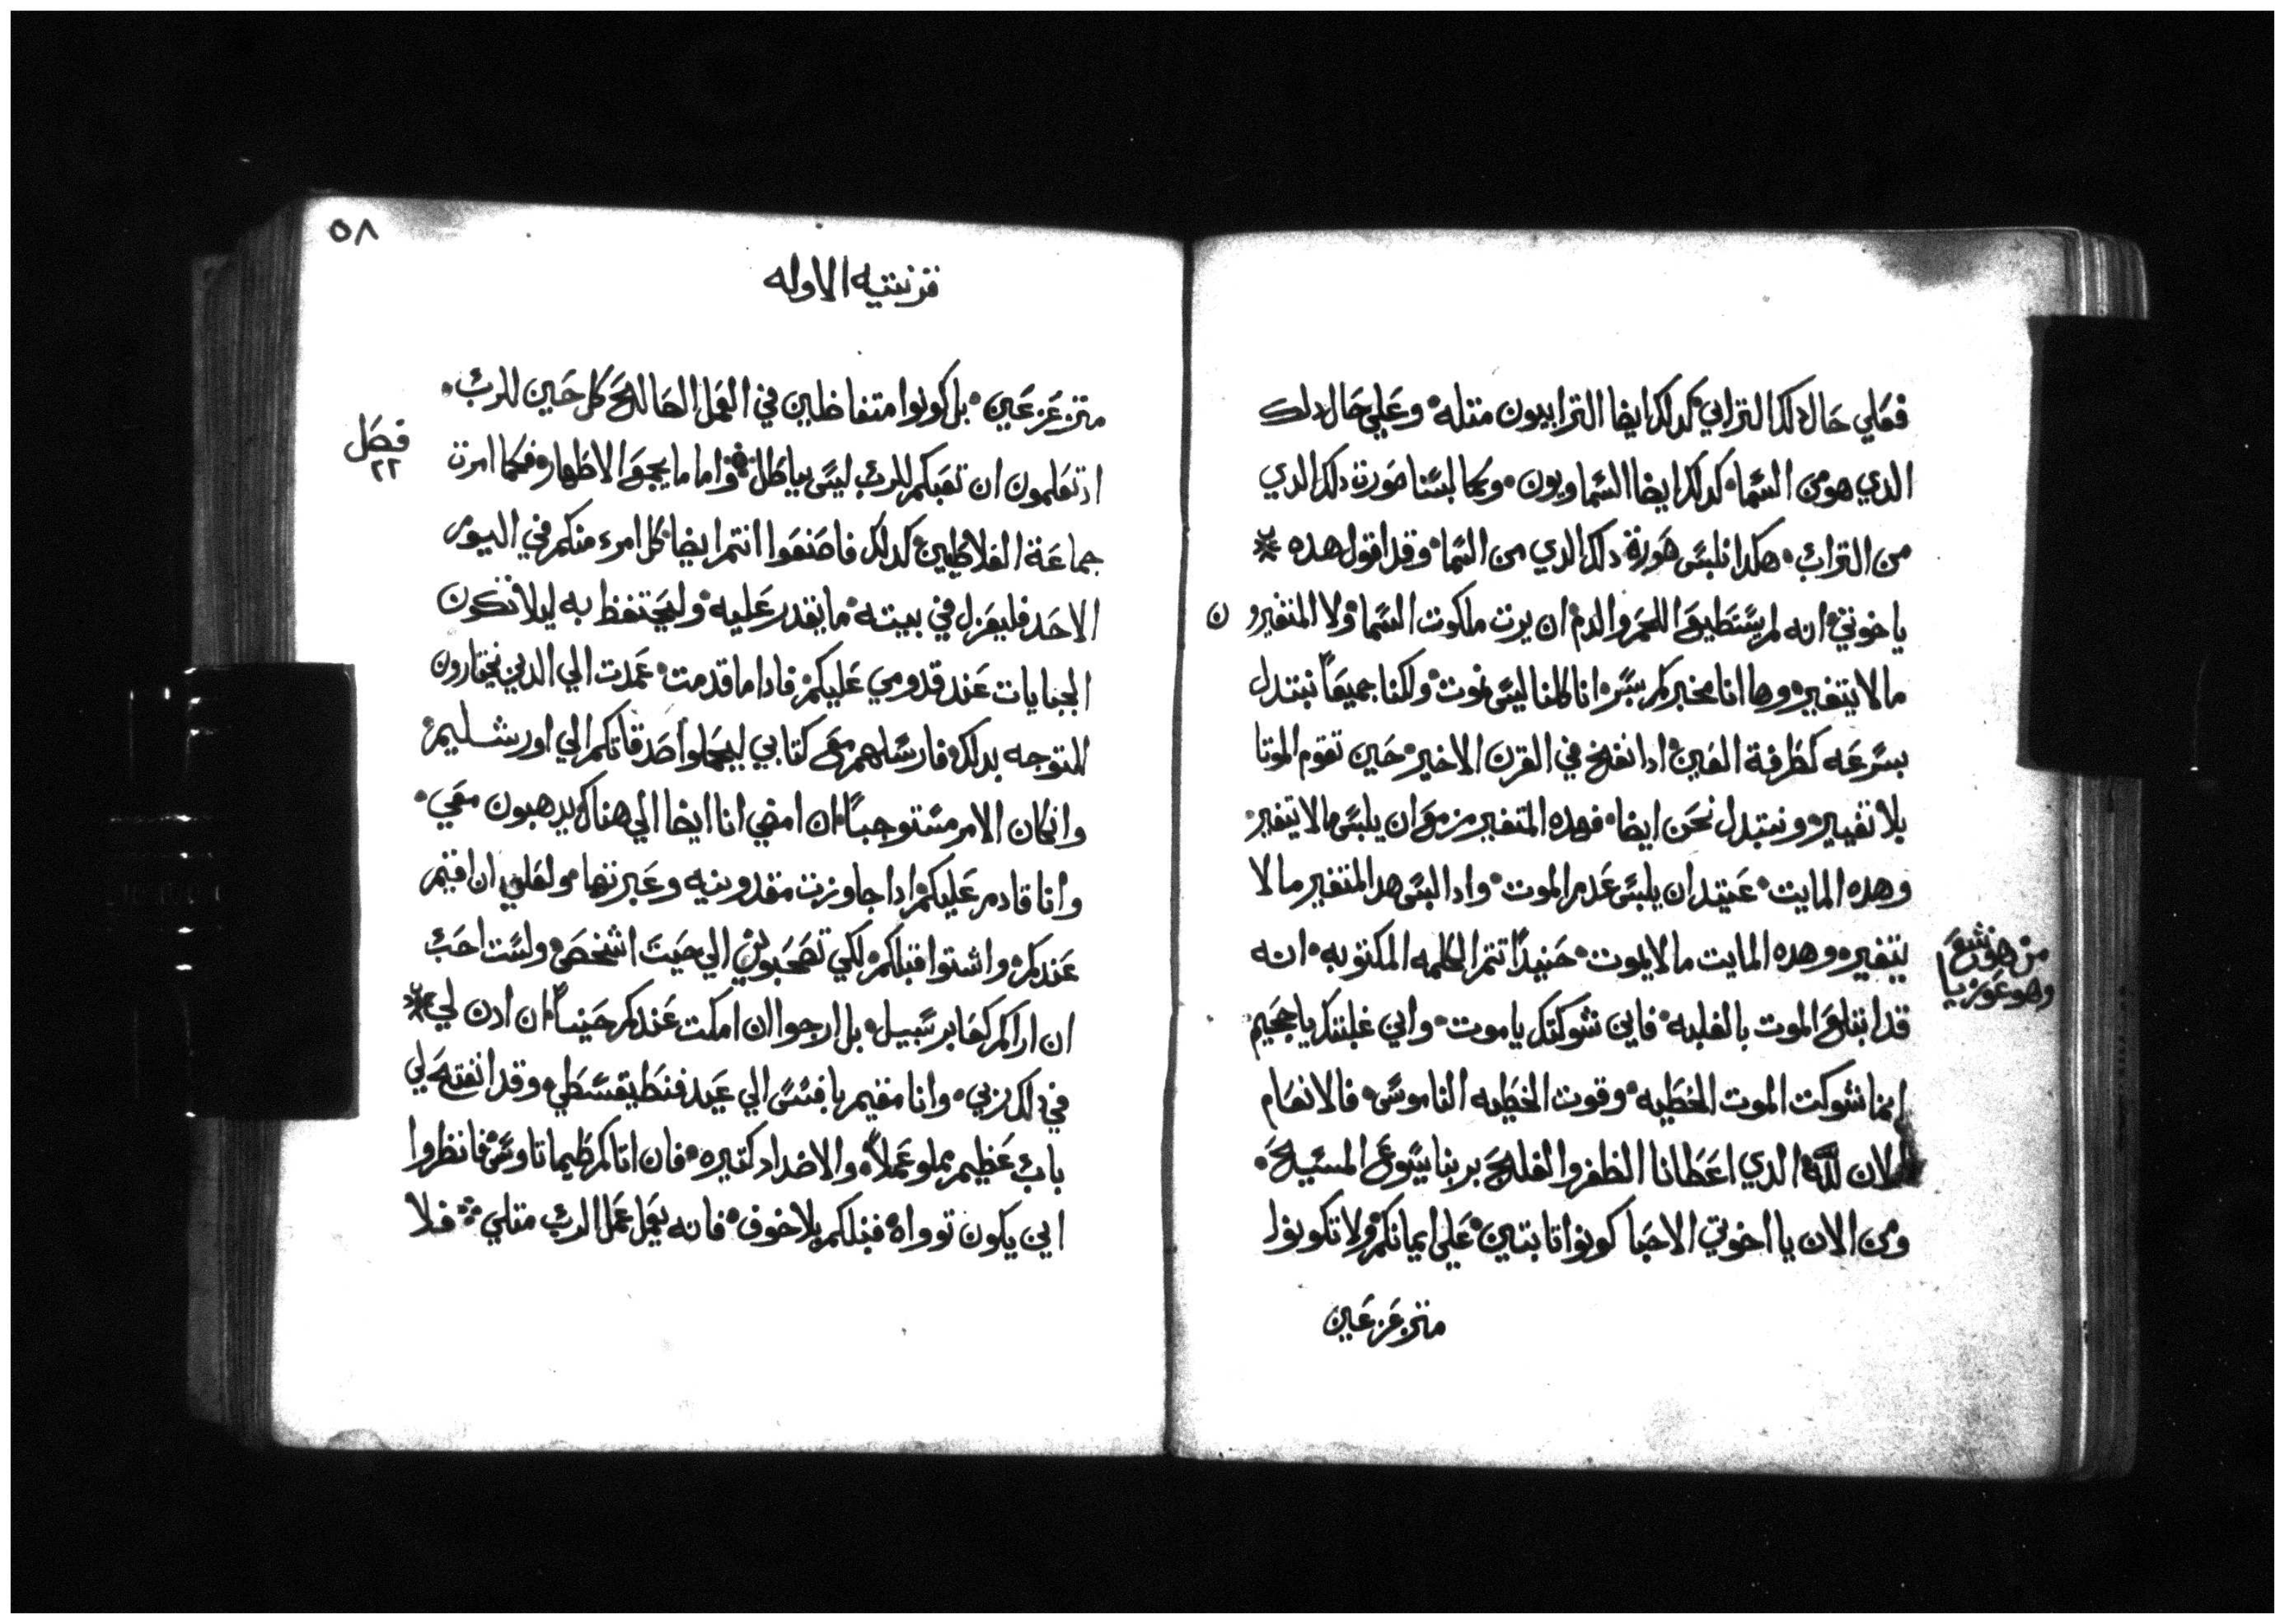 فعلي حال دلك الترابي كدلك ايضا الترابيون متله وعلي حال دلك
الدي هو من السما كدلك ايضا السماويون وكما لبسنا صورت دلك الدي
من التراب هكدا نلبس صورة دلك الدي من السما وقد اقول هده
ياخوتي انه لم يستطيع اللحم والدم ان يرت ملكوت السما ولا المتغيرون
مالا يتغير وها انا مخبركم بسر انا كلنا ليس نموت ولكنا جميعاً نبتدل
بسرعه كطرفة العين ادا نفخ في القرن الاخير حين تقوم الموتا
بلا تغيير ونبتدل نحن ايضا فهده المتغير مزمع ان يلبس مالا يتغير
وهده المايت عتيد ان يلبس عدم الموت وادا لبس هدا المتغير مالا
يتغير وهده المايت مالا يموت حنيداً تتم الكلمه المكتوبه انه
من هوشع
وهو عوزيا
قد ابتلع الموت بالغلبه فاين شوكتك ياموت واين غلبتك ياجحيم
انما شوكت الموت الخطيه وقوت الخطيه الناموس فالانعام
الان لله الدي اعطانا الظفر والفلح بربنا يسوع المسيح
ومن الان يا اخوتي الاحبا كونوا تابتين علي ايمانكم ولا تكونوا
متزعزعين
٥٨
قزنتيه الاوله
متزعزعين بل كونوا متفاضلين في العمل الصالح كل حين للرب
اد تعلمون ان تعبكم للرب ليس بباطل واما ما يجمع الاطهار فكما امرت
فصل
٢٢
جماعة الغلاطيين كدلك فاصنعوا انتم ايضا كل امرء منكم في اليوم
الاحد فليعزل في بيته ما يقدر عليه وليحتفظ به ليلا تكون
الجبايات عند قدومي عليكم فادا ما قدمت عمدت الي الدين تختارون
للتوجه بدلك فارسلهم مع كتابي ليحملوا صدقاتكم الي اورشليم
وان كان الامر مستوجباً ان امضي انا ايضا الي هناك يدهبون معي
وانا قادم عليكم ادا جاوزت مقدونيه وعبرتها ولعلي ان اقيم
عندكم واشتوا قبلكم لكي تصحبوني الي حيت اشخص ولست احب
ان اراكم كعابر سبيل بل ارجوا ان امكت عندكم حيناً ان ادن لي
في دلك ربي وانا مقيم بافسس الي عيد فنطيقسطي وقد انفتح لي
باب عظيم مملو عملاً والاضداد كتيره فان اتاكم طيماتاوس فانظروا
اين يكون توواه قبلكم بلا خوف فانه يعمل عمل الرب متلي فلا